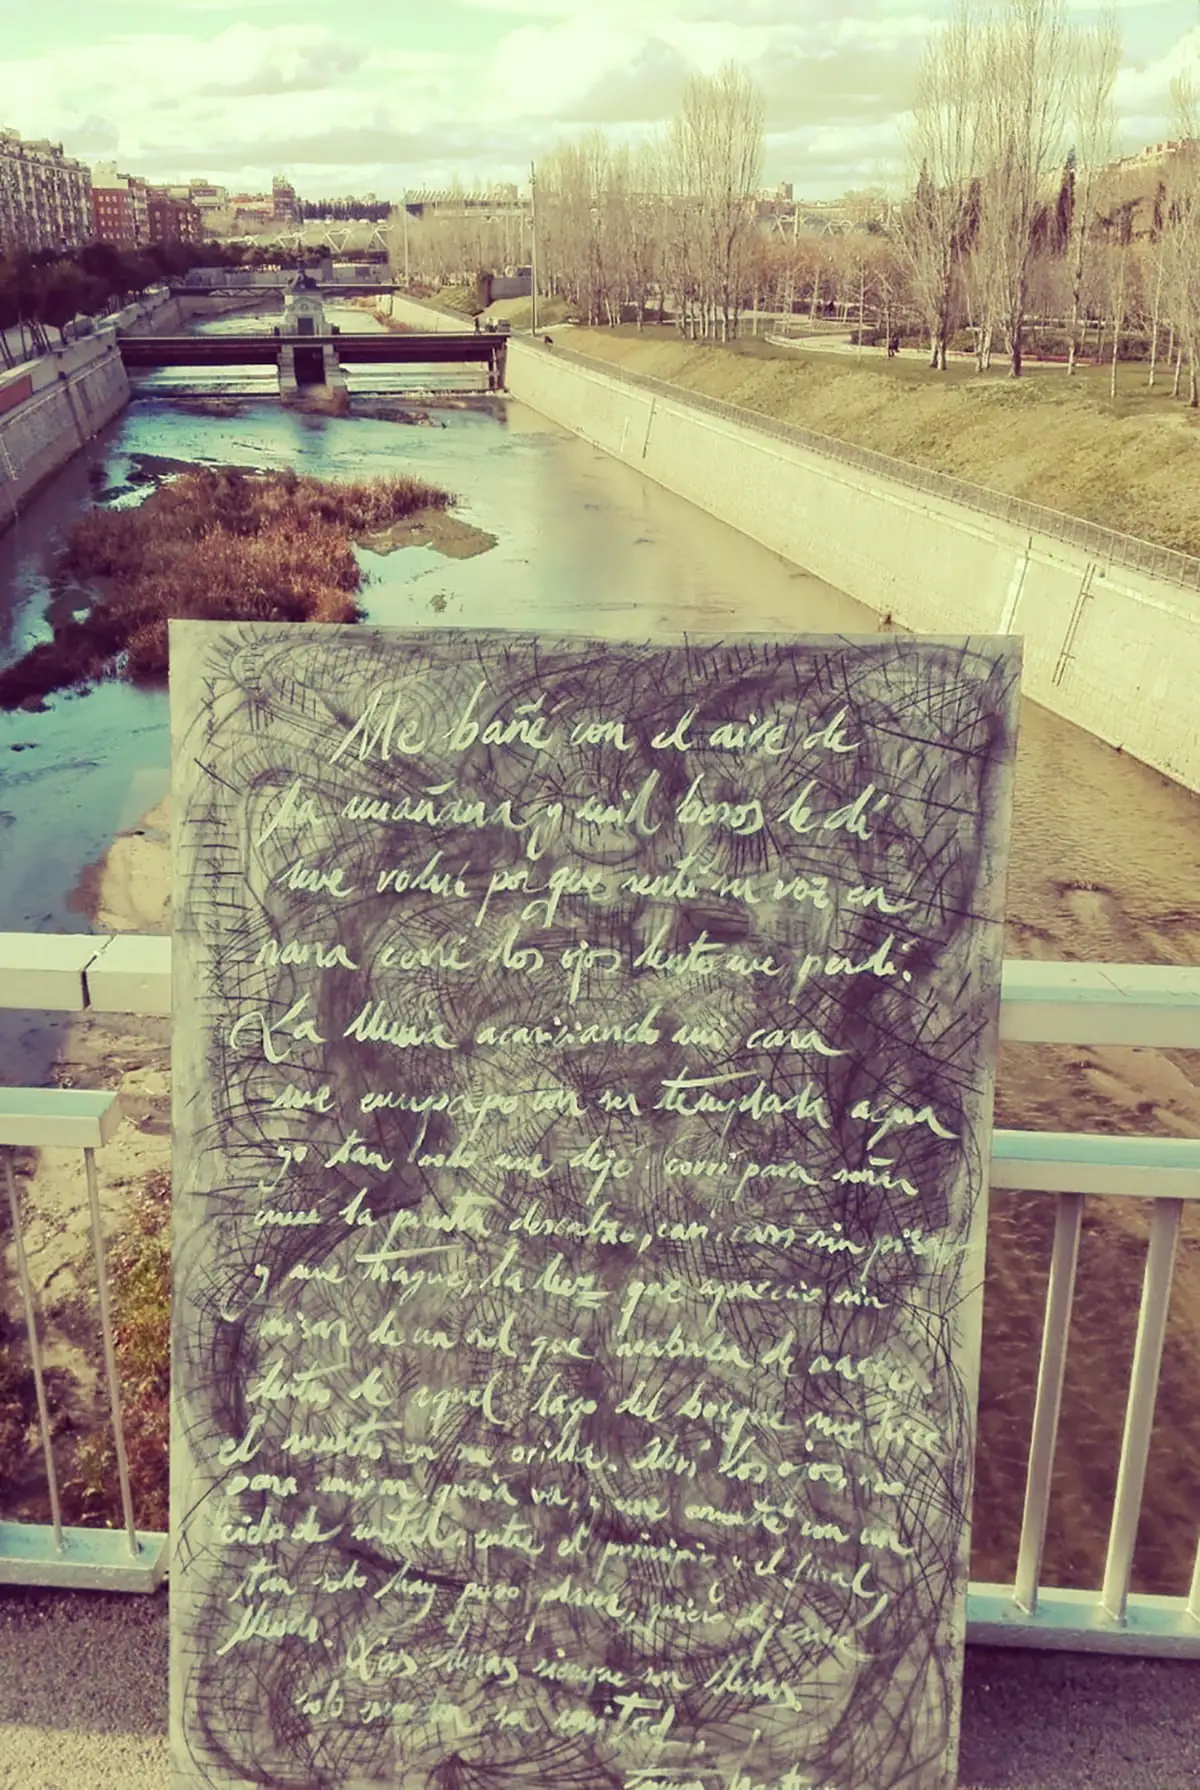 Me bañé con el aire de
la mañana y mil besos le dí
me volví porque sentí su voz en
nana cerré los ojos lento me perdí.
La lluvia acariciando mi cara
me empapo con su templada agua
yo tan solo me dejé. Corrí para
crucé la puerta descalzo, casi, casi sin
y me tragué, la luz que apareció sin
de un sol que acababa de nacer
dentro de aquel lago del bosque me hice
el muerto en su orilla. Abrí los ojos, no
para mirar, quería ver, y me con un
cielo de metal, entre el principio y el final,
tan solo hay puro placer, quiero dejarme
llevar.
Las siempre son
solo su mitad.